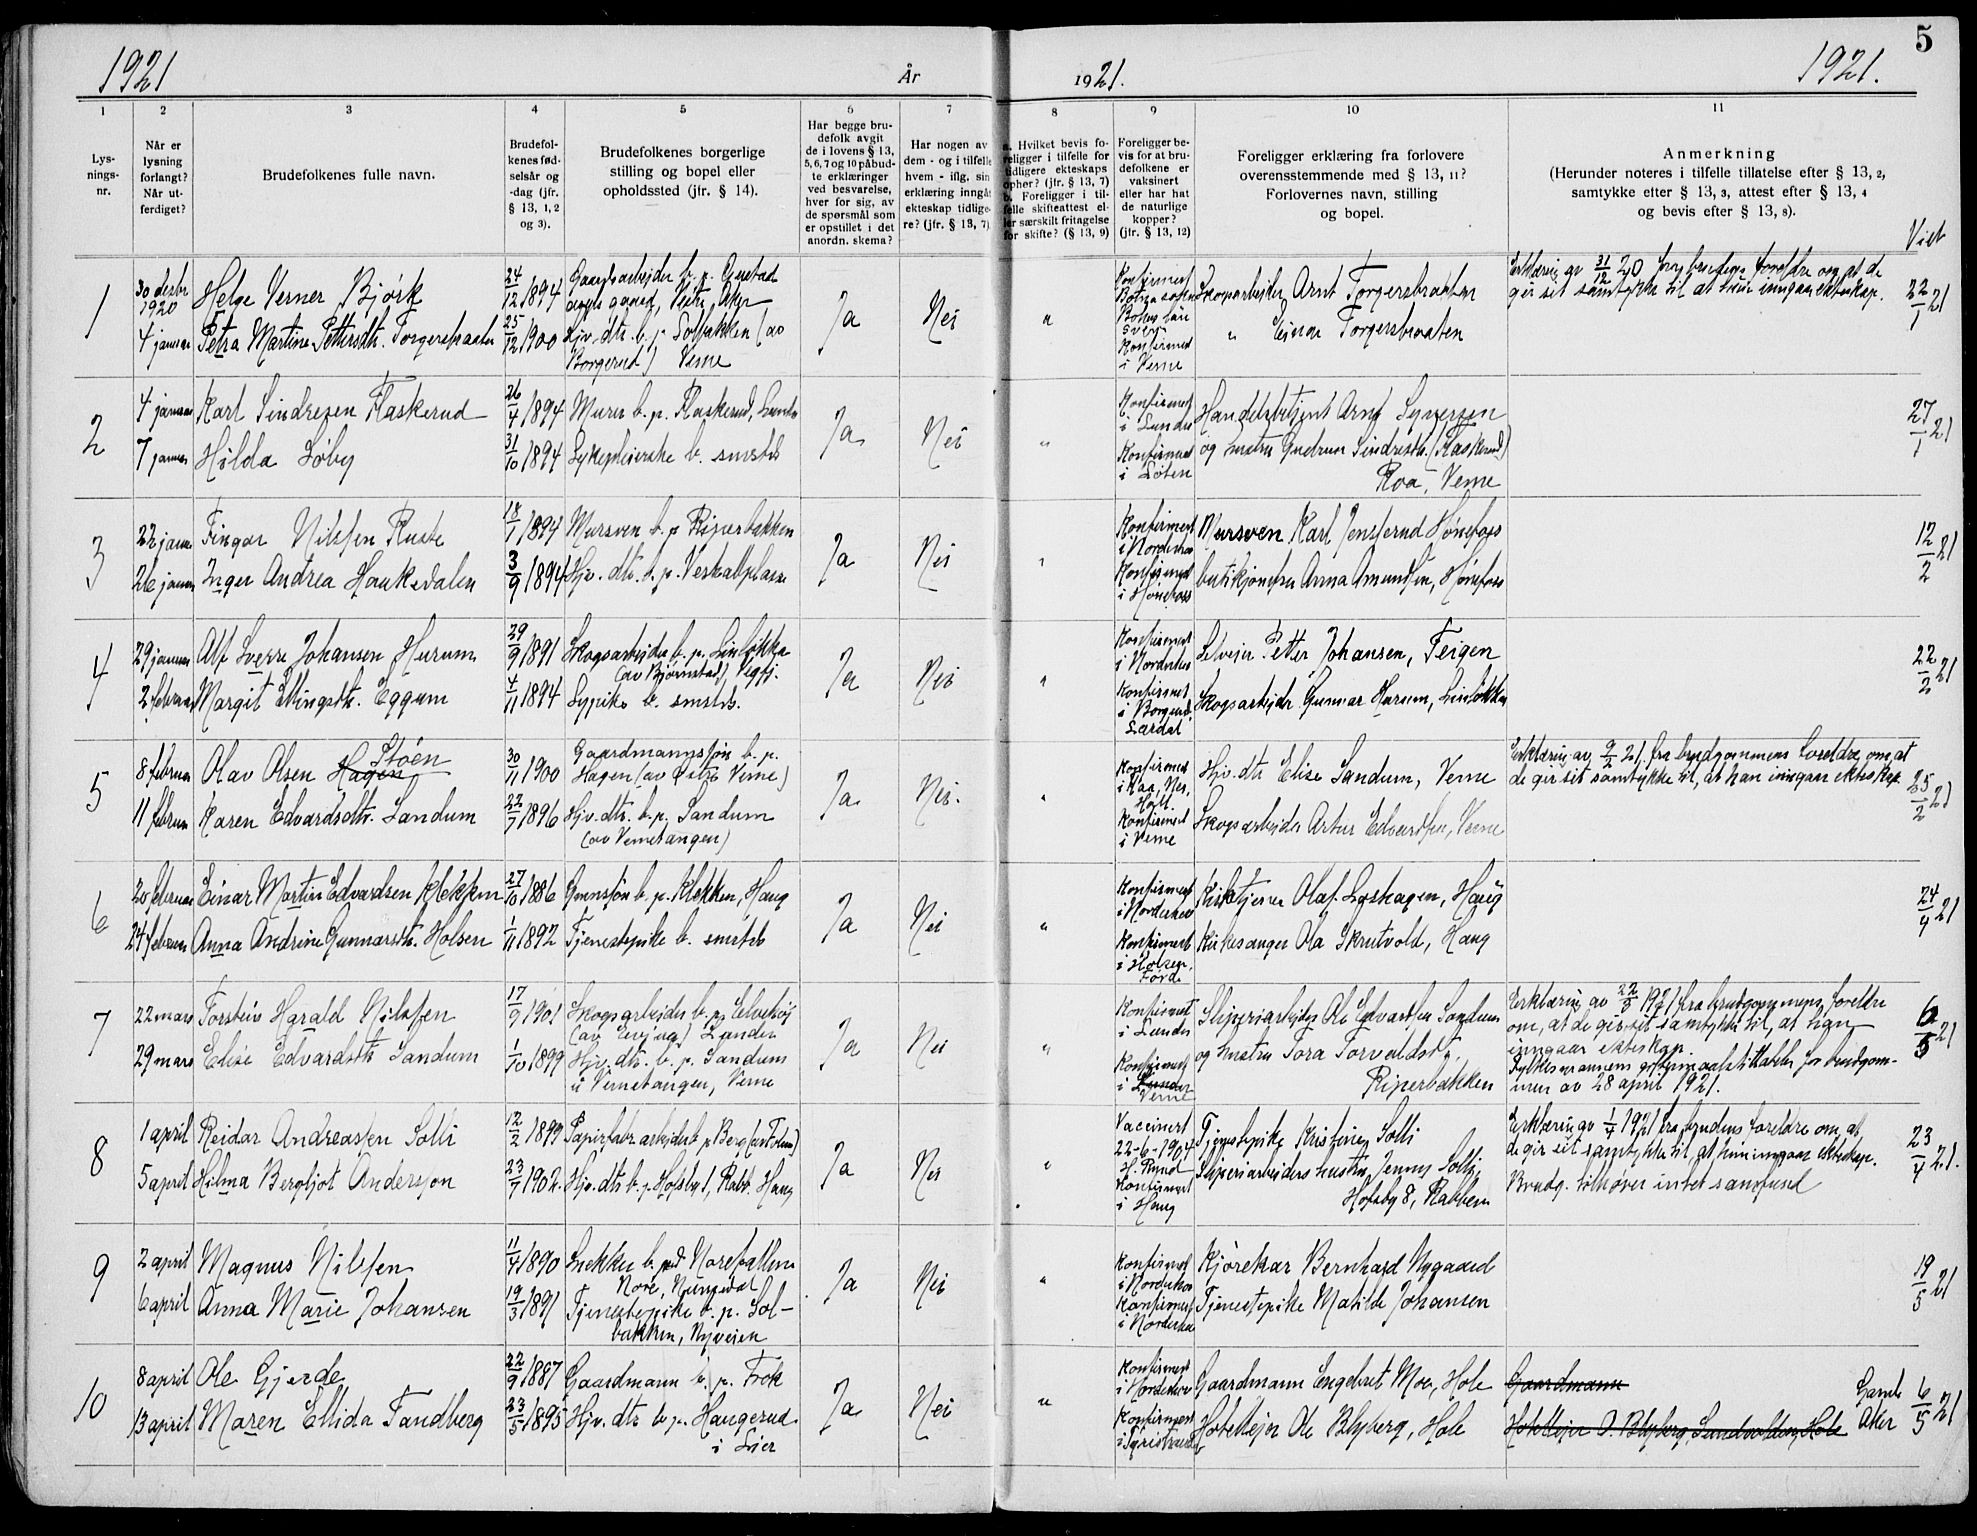 5
1921
År
1921.
1921.
1 2 3 4 5 6 7 8 9 10 11
Lys-
nings-
nr.
Når er
lysning
forlangt?
Når ut-
ferdiget?
Brudefolkenes fulle navn.
Brudefol-
kenes fød-
selsår og
-dag (jfr.
§ 13, 1, 2
og 3).
Brudefolkenes borgerlige
stilling og bopel eller
opholdssted (jfr. § 14).
Har begge bru-
defolk avgit
de i lovens § 13,
5, 6, 7 og 10 påbud-
te erklæringer
ved besvarelse,
hver for sig, av
de spørsmål som
er opstillet i det
anordn. skema?
Har nogen av
dem - og i tilfelle
hvem - iflg. sin
erklæring inngåt
ekteskap tidlige-
re? (jfr. § 13, 7)
a. Hvilket bevis fo-
religger i tilfelle for
tidligere ekteskaps
opher? (jfr. § 13, 7)
b. Foreligger i til-
felle skifteattest el-
ler særskilt fritagelse
for skifte? (§ 13, 9)
Foreligger be-
vis for at bru-
defolkene er
vaksinert
eller har hat
de naturlige
kopper?
(jfr. § 13, 12)
Foreligger erklæring fra forlovere
overensstemmende med § 13, 11?
Forlovernes navn, stilling
og bopel.
Anmerkning
(Herunder noteres i tilfelle tillatelse efter § 13, 2,
samtykke efter § 13, 3, attest efter § 13, 4
og bevis efter § 13, 8).
Viet
1
30 desbr
1920
4 januar
Helge Verner Bjørk
Petra Martine Pettersdtr. Torgersbraaten
24/12 1894
25/12 1900
Gaardsarbejder b. p.
gaard, Vestre Aker
Hjv. dtr. b. p. Solbakken (av
Borgerud) Verne
Ja
Nei
"
Konfirmert
Bohus län
Sverige
Konfirmert
i Verne
Skogsarbejder Arnt Torgersbraaten
" Einar Torgersbraaten
Erklæring av 31/12 20 fra brudens foreldre om, at de
gir sit samtykke til at hun inngaar ekteskap.
22/1 21
2
4 januar
7 januar
Karl Sindresen Flaskerud
Hilda Løby
26/4 1894
31/10 1894
Murer b. p. Flaskerud, Lunder
Sykepleierske b. smsteds
Ja
Nei
"
Konfirmert
i Lunder
Konfirmert
i Løten
Handelsbetjent Arne Syversen
og hustru Gudrun Sindresdtr. (Flaskerud)
Roa, Verne
27/1 21
3
22 januar
26 januar
Fingar Nilssen Ruste
Inger Andrea Haukedalen
18/1 1894
3/9 1894
Mursven b. p. Ripserbakken
Hjv. dtr. b. p. Veskalplassen
Ja
Nei
"
Konfirmert
i Norderhov
Konfirmert
i Hønefoss
Mursven Karl Jensserud Hønefoss
butikjomfru Anna Amundsen, Hønefoss
12/2 21
4
29 januar
2 februar
Alf Sverre Johansen Hurum
Margit Ellingsdtr. Eggum
29/9 1891
4/11 1894
Skogsarbejder b. p. Linløkka
(av Bjørnstad), Vegfj.
Sypike b. smsteds.
Ja
Nei
"
Konfirmert
i Norderhov
Konfirmert
i Borgund,
Lærdal
Selveier Petter Johansen, Feigen
Skogsarbejder Gunnar Hurum, Linløkka
22/2 21
5
8 februar
11 februar
Støen
Olav Olsen Hagen
Karen Edvardsdtr. Sandum
30/11 1900
22/7 1896
Gaardmannssøn b. p.
Hagen (av Verne)
Hjv. dtr. b. p. Sandum
(av Vernetangen)
Ja
Nei.
"
Konfirmert
Konfirmert
i Verne
Hjv. dtr. Elise Sandum, Verne
Skogsarbejder Artur Edvardsen, Verne
Erklæring av 9/2 21 fra brudgommens foreldre om, at
de gir sit samtykke til, at han inngaar ekteskap.
25/2 21
6
20 februar
24 februar
Einar Martin Edvardsen Klekken
Anna Andrine Gunnarsdtr. Holsen
27/10 1886
1/11 1892
b. p. Klekken, Haug
Tjenestepike b. smsteds
Ja
Nei
"
Konfirmert
i Norderhov
Konfirmert
i Holsen,
Førde
Kirketjener Olaf Løshagen, Haug
Kirkesanger Ola Skrutvold, Haug
24/4 21
7
22 mars
29 mars
Torstein Harald Nilssen
Elise Edvardsdtr. Sandum
17/9 1901
1/10 1899
Skogsarbejder b. p. Elvehøj
(av ) Lunder
Hjv. dtr. b. p. Sandum
i Vernetangen, Verne
Ja
Nei
"
Konfirmert
i Lunder
Konfirmert
i Lunder
Verne
Sliperiarbejder Ole Edvardsen Sandum
og hustru Tora Torvaldsdtr,
Ripserbakken
Erklæring av 22/3 1921 fra brudgommens foreldre
om, at de gir sit samtykke til, at han
inngaar ekteskap.
Fylkesmannens giftermaalstillatelse for brudgom-
men av 28 april 1921.
6/5 21
8
1 april
5 april
Reidar Andreassen Solli
Hilma Bergljot Andersson
12/2 1899
23/7 1902.
Papirfabr. arbejder b. p. Berg
Hjv. dtr. b. p. Hofsby 1, Rabb. Haug
Ja
Nei
"
Vaccinert
22-6-1904
H. Rund
Konfirmert
i Haug
Tjenestepike Kristine Solli
Sliperiarbejders hustru, Jenny Solli,
Hofsby 8, Rabben
Erklæring av 1/4 1921 fra brudens foreldre om, at
de gir sit samtykke til, at hun inngaar ekteskap.
Brudg. tilhører intet samfund
23/4 21.
9
2 april
6 april
Magnus Nilssen
Anna Marie Johansen
11/4 1890
19/3 1891
Snekker b. ved Norefallene
Nore, Numedal
Tjenestepike b. p. Sol-
bakken, Nyveien
Ja
Nei
"
Konfirmert
i Norderhov
Konfirmert
i Norderhov
Kjørekar Bernhard Nygaard
Tjenestepike Matilde Johansen
19/5 21
10
8 april
13 april
Ole Gjerde
Maren Ellida Tandberg
22/9 1887
23/5 1895
Gaardmann b. p. Frok
Hjv. dtr b. p. Haugerud
i Lier
Ja
Nei
"
Konfirmert
i Norderhov
Konfirmert
Gaardmann Engebret Moe, Hole
Hotelleier Ole Blyberg, Hole
Gaardmann
Hotelleier O. Blyberg, Sundvolden, Hole
Gamle
Aker
6/5 21